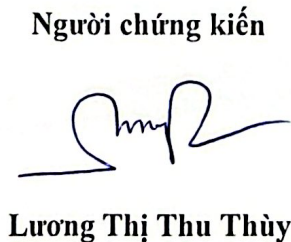 Người chứng kiến
Lương Thị Thu Thùy